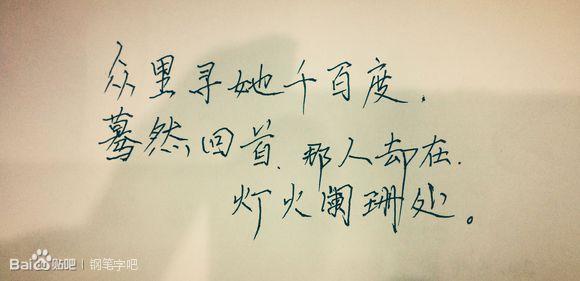 众里寻她千百度.
蓦然回首.那人却在.
灯火阑珊处。
Bai du贴吧|钢笔字吧